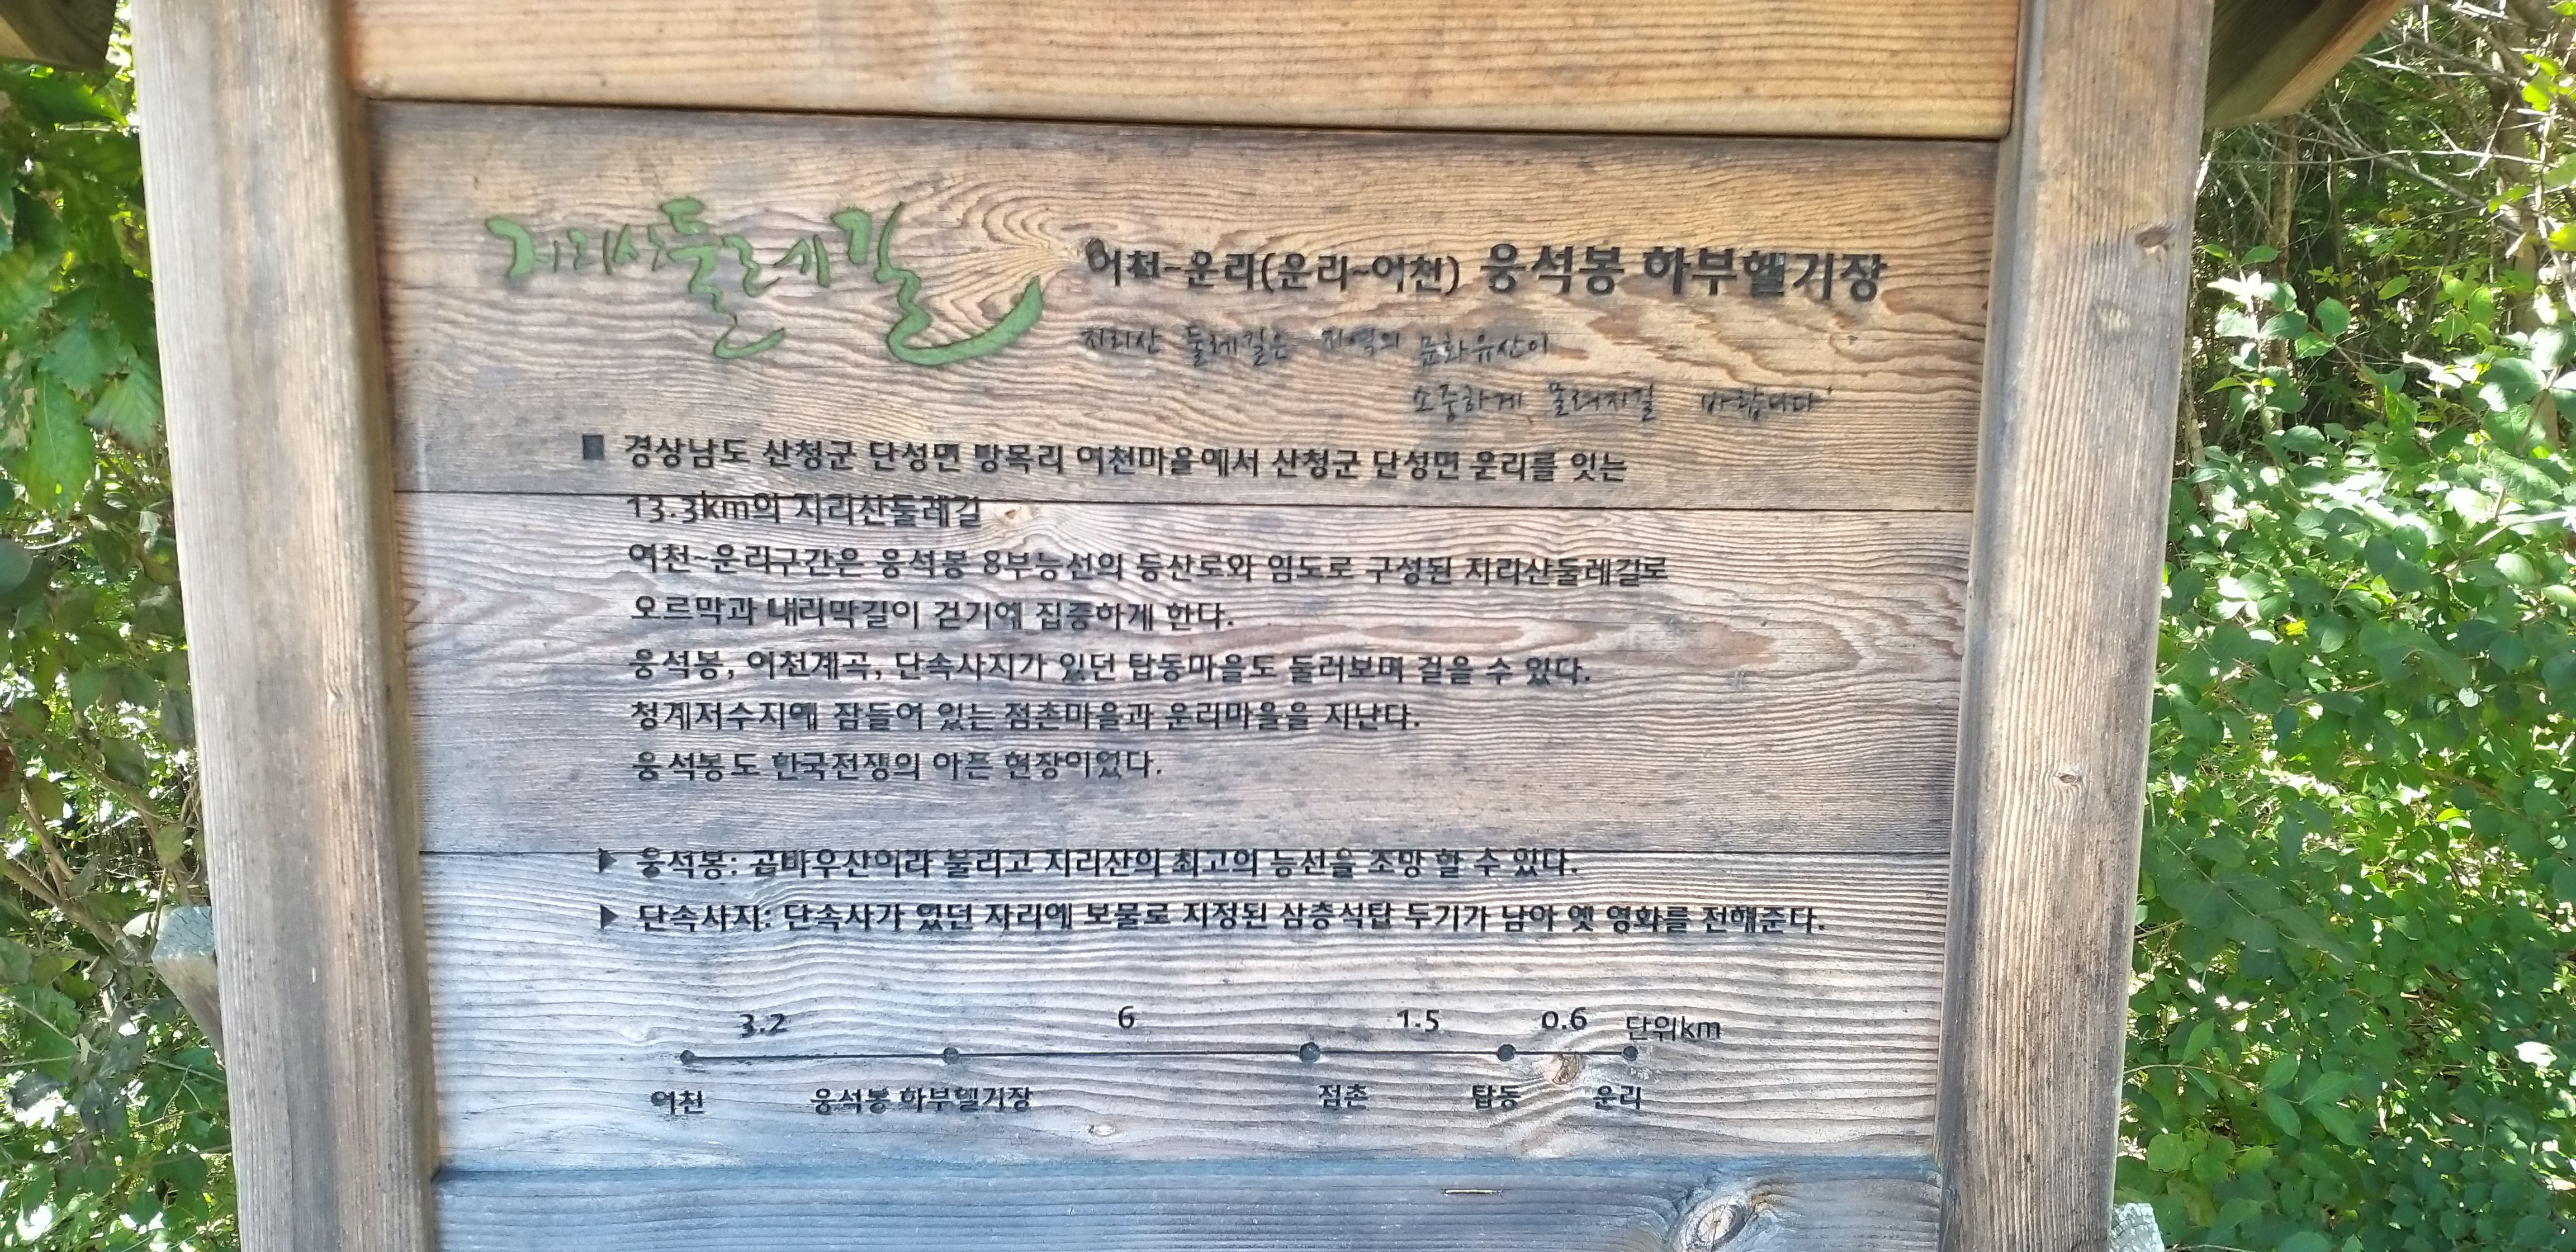 지리산둘레길
어천~운리(운리~어천) 웅석봉 하부헬기장
지리산 둘레길은 지역의 문화유산이
소중하게 물려지길 바랍니다
■ 경상남도 산청군 단성면 방목리 어천마을에서 산청군 단성면 운리를 잇는
13.3km의 지리산둘레길
어천~운리구간은 웅석봉 8부능선의 등산로와 임도로 구성된 지리산둘레길로
오르막과 내리막길이 걷기에 집중하게 한다.
웅석봉, 어천계곡, 단속사지가 있던 탑동마을도 둘러보며 걸을 수 있다.
청계저수지에 잠들어 있는 점촌마을과 운리마을을 지난다.
웅석봉도 한국전쟁의 아픈 현장이었다.
▶ 웅석봉: 곰바우산이라 불리고 지리산의 최고의 능선을 조망 할 수 있다.
▶ 단속사지: 단속사가 있던 자리에 보물로 지정된 삼층석탑 두기가 남아 옛 영화를 전해준다.
3.2 6 1.5 0.6 단위km
어천 웅석봉 하부헬기장 점촌 탑동 운리